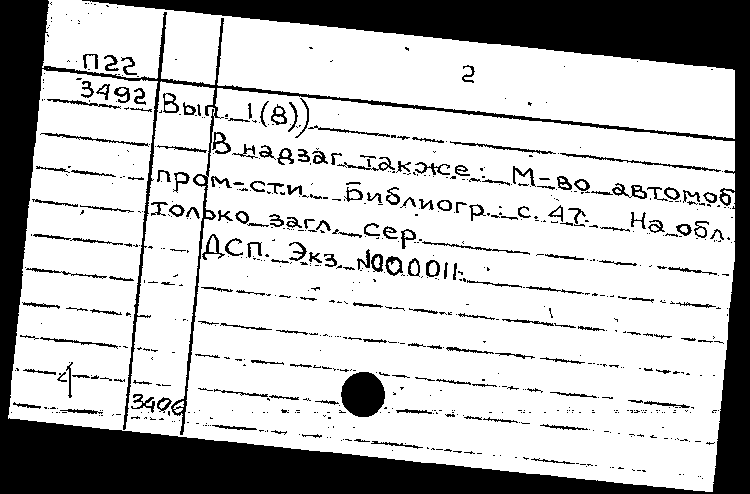 П22
2
3492 Вып. 1(8))
В надзаг. также: М-во автомоб
пром-сти. Библиогр.: с. 47. На обл.
только загл. сер.
ДСП. Экз. №000011.
4